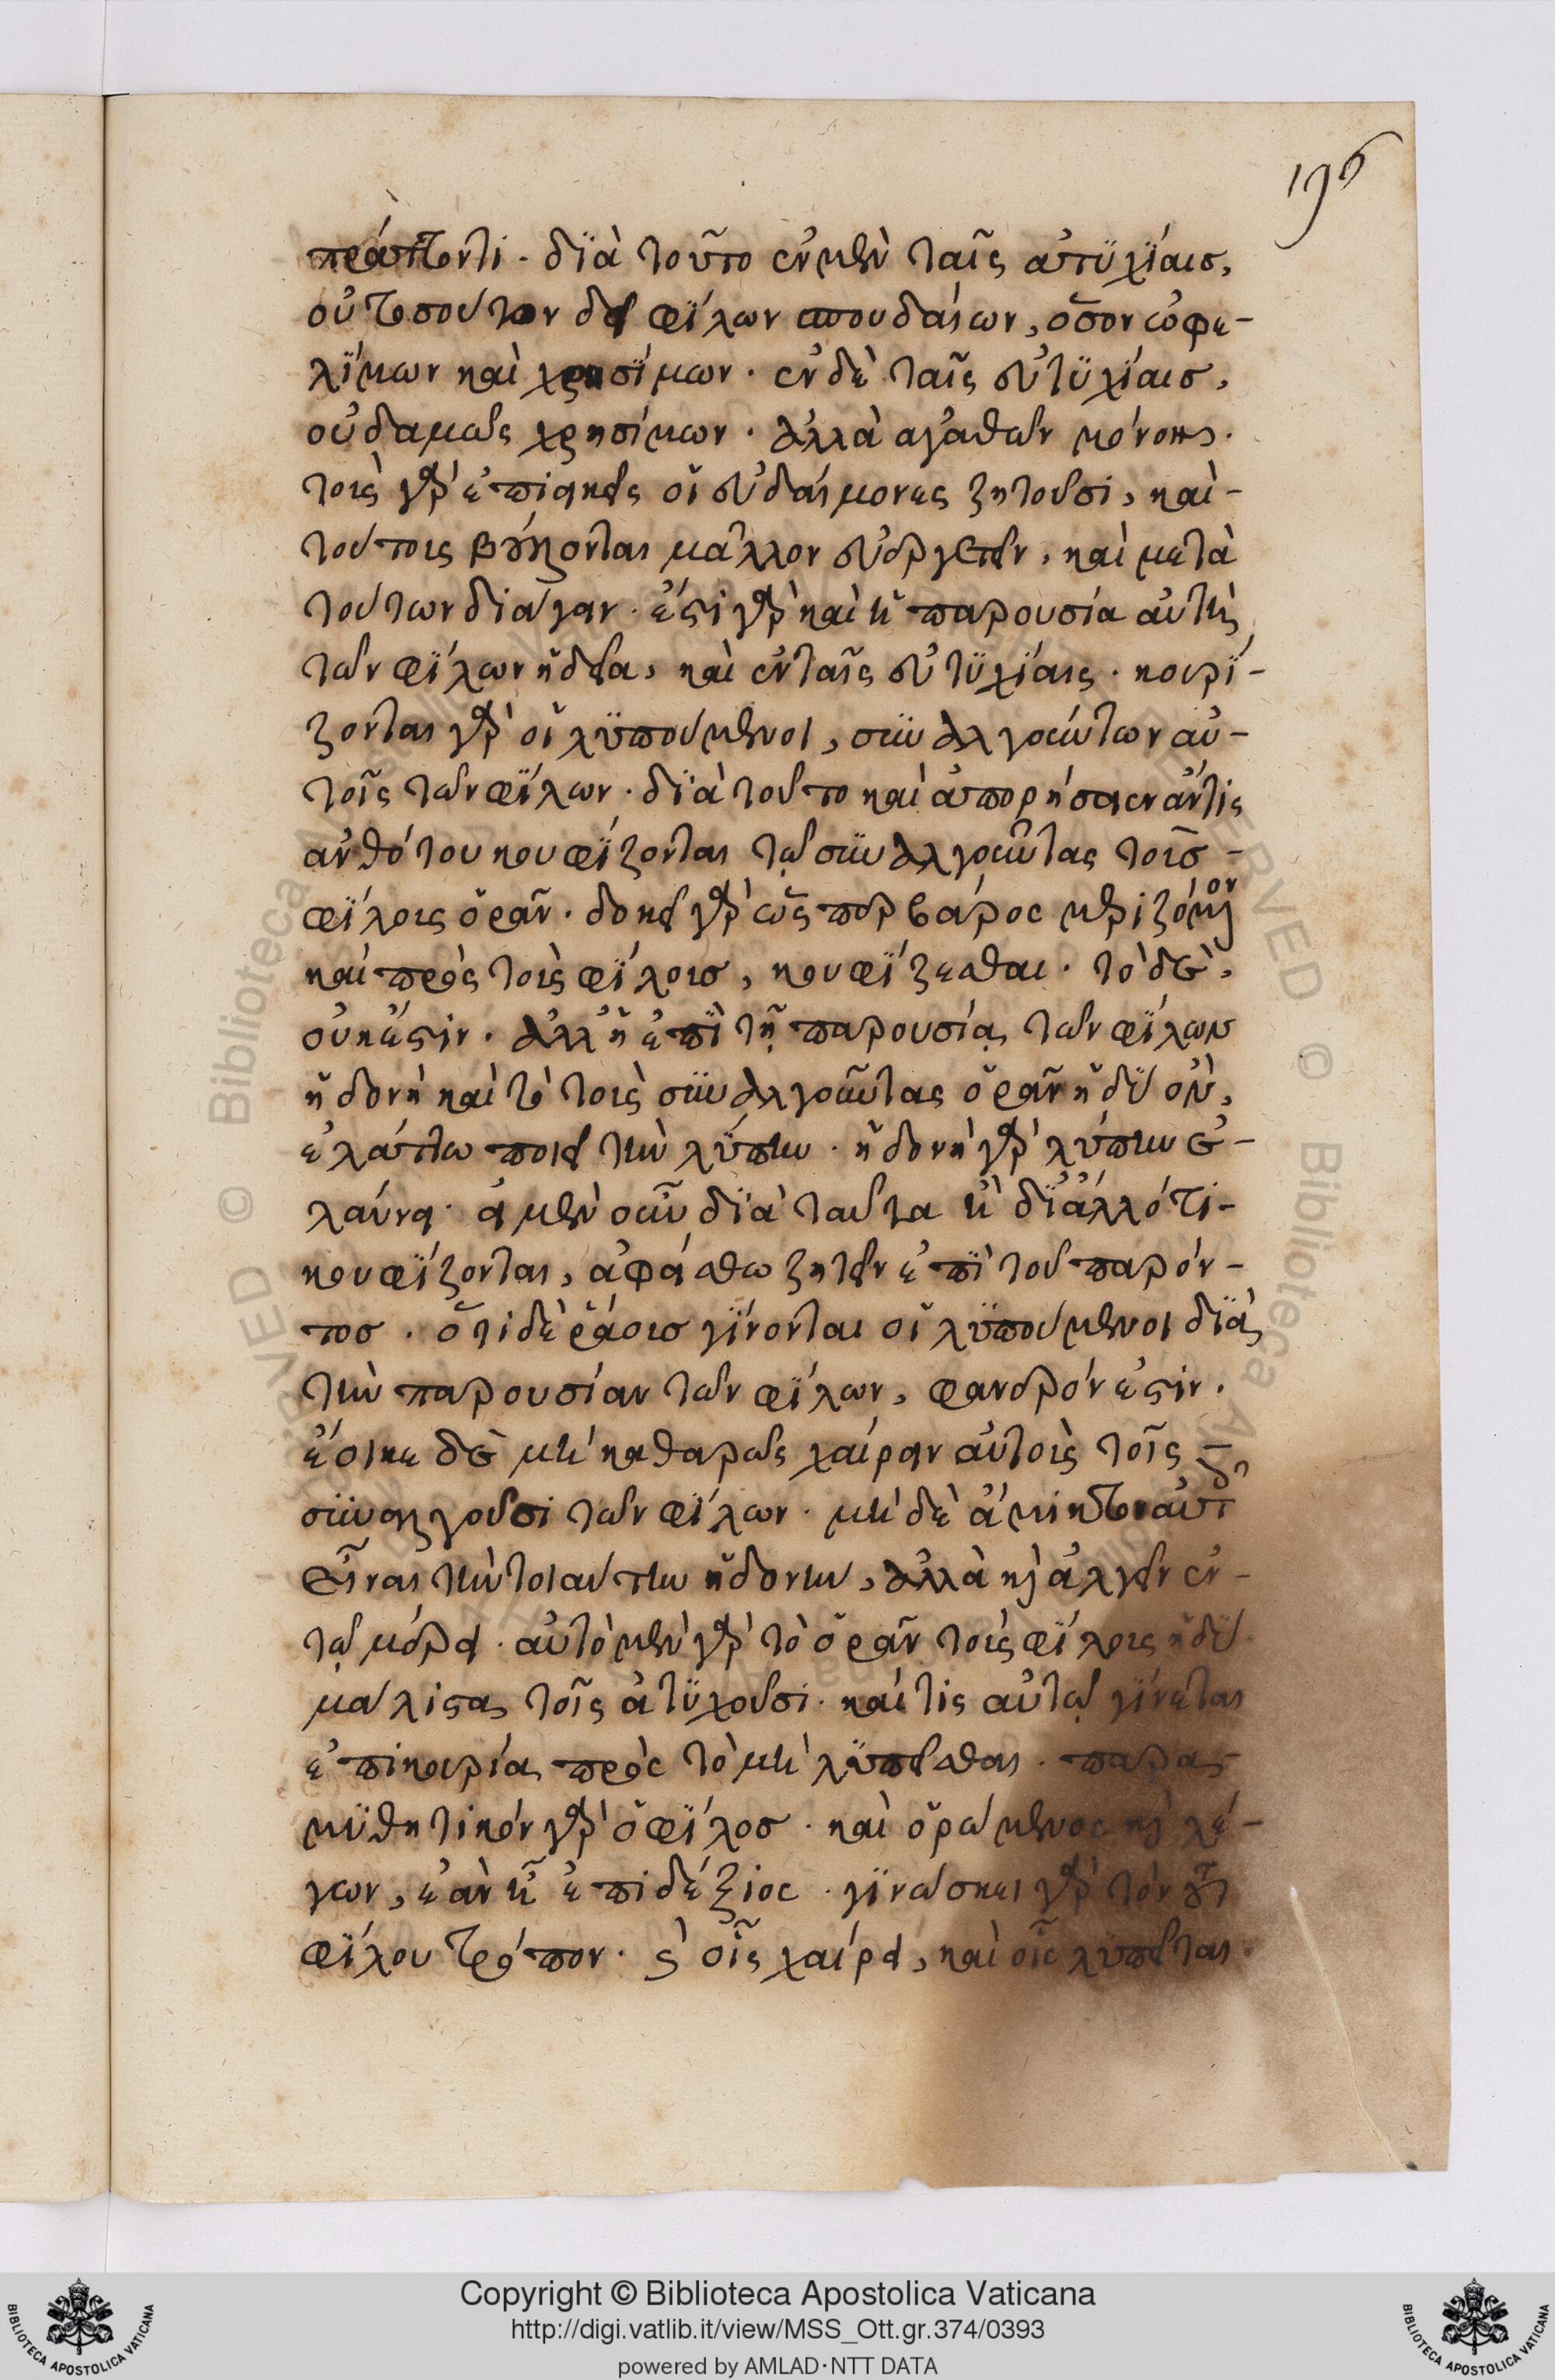 196
πράττοντι. διὰ τοῦτο ἐν μὲν ταῖς ἀτυχίαις,
οὐ τοσούτον δεῖ φίλων σπουδαίων, ὅσον ὠφε-
λίμων καὶ χρησίμων. ἐν δὲ ταῖς εὐτυχίαις,
οὐδαμῶς χρησίμων. ἀλλὰ ἀγαθῶν μόνον.
τοὺς γὰρ ἐπιεικεῖς οἱ εὐδαίμονες ζητοῦσι, καὶ-
τούτους βούλονται μᾶλλον εὐεργετεῖν, καὶ μετὰ
τούτων διάγειν. ἔστι γὰρ καὶ ἡ παρουσία αὐτὴ
τῶν φίλων ἡδεῖα, καὶ ἐν ταῖς εὐτυχίαις. κουφί-
ζονται γὰρ οἱ λυπούμενοι, συναλγούντων αὐ-
τοῖς τῶν φίλων. διὰ τοῦτο καὶ ἀπορήσειεν ἄν τις
ἀνθότου κουφίζονται τῷ συναλγοῦντας τοὺς -
φίλους ὁρᾶν. δοκεῖ γὰρ ὥσπερ βάρος μεριζόμενον
καὶ πρὸς τοὺς φίλους, κουφίζεσθαι. τὸ δὲ,
οὐκ ἔστιν. ἀλλ' ἡ ἐπὶ τῇ παρουσίᾳ τῶν φίλων
ἡδονὴ καὶ τὸ τοὺς συναλγοῦντας ὁρᾶν ἡδὺ ὂν,
ἐλάττω ποιεῖ τὴν λύπην. ἡδονὴ γὰρ λύπην ἐ-
λαύνει. εἰ μὲν οὖν διὰ ταῦτα ἢ δι' ἄλλό τι-
κουφίζονται, ἀφείσθω ζητεῖν ἐπὶ τοῦ παρόν-
τος. ὅτι δὲ ῥάους γίνονται οἱ λυπούμενοι διὰ
τὴν παρουσίαν τῶν φίλων, φανερόν ἐστιν.
ἔοικε δὲ μὴ καθαρῶς χαίρειν αὐτοὺς τοῖς -
συναλγοῦσι τῶν φίλων. μὴ δὲ ἄμικτον αὐτοῖς
εἶναι τὴν τοιαύτην ἡδονὴν, ἀλλὰ καὶ ἀλγεῖν ἐν -
τῷ μέρει. αὐτὸ μὲν γὰρ τὸ ὁρᾶν τοὺς φίλους ἡδὺ.
μάλιστα τοῖς ἀτυχοῦσι. καί τις αὐτῷ γίνεται
ἐπικουρία πρὸς τὸ μὴ λυπεῖσθαι. παρα-
μυθητικὸν γὰρ ὁ φίλος. καὶ ὁρώμενος καὶ λέ-
γων, ἐὰν ᾖ ἐπιδέξιος. γινώσκει γὰρ τὸν τοῦ
φίλου τρόπον. καὶ οἷς χαίρει, καὶ οἷς λυπεῖται.
Copyright © Biblioteca Apostolica Vaticana
http://digi.vatlib.it/view/MSS_Ott.gr.374/0393
powered by AMLAD·NTT DATA
BIBLIOTECA APOSTOLICA VATICANA
BIBLIOTECA APOSTOLICA VATICANA